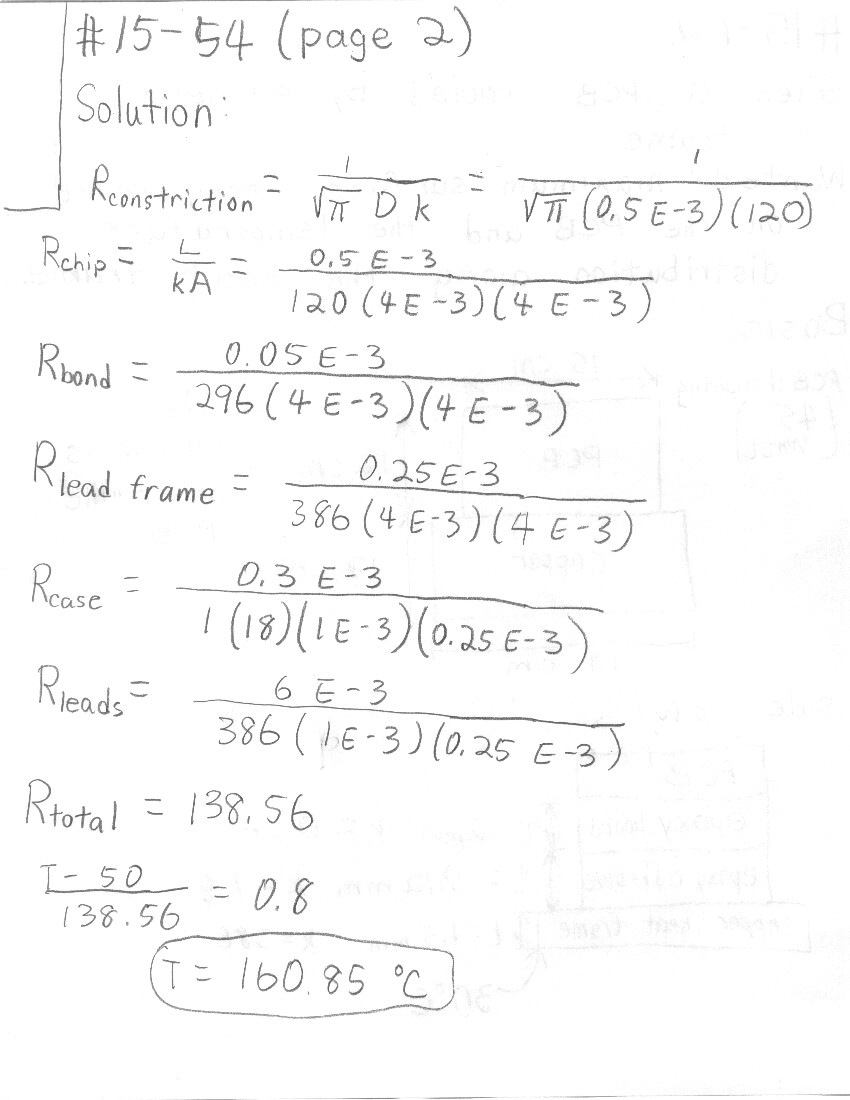 #15-54 (page 2)
Solution:
Rconstriction = 1 / (√π D k) = 1 / (√π (0.5 E-3)(120))
Rchip = L / kA = 0.5 E-3 / 120(4E-3)(4 E-3)
Rbond = 0.05 E-3 / 296(4E-3)(4E-3)
Rlead frame = 0.25E-3 / 386(4E-3)(4 E-3)
Rcase = 0.3 E-3 / 1(18)(1E-3)(0.25E-3)
Rleads = 6 E-3 / 386(1E-3)(0.25 E-3)
Rtotal = 138.56
T-50 / 138.56 = 0.8
T = 160.85 °C